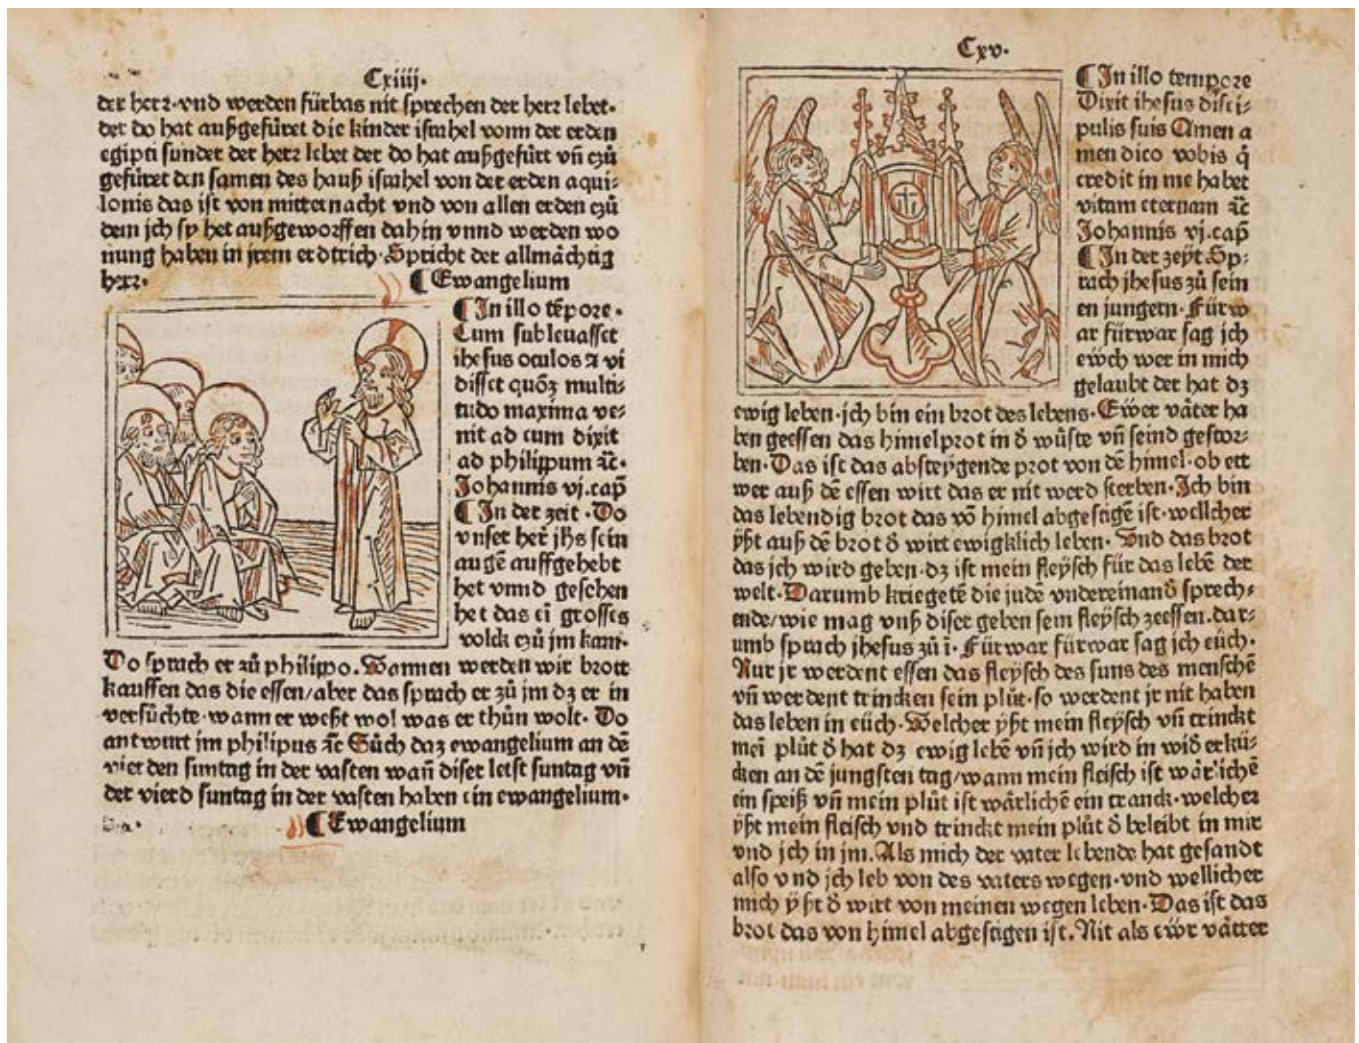 Cxiiij.
der herr·vnd werden fürbas nit sprechen der herr lebet·
der do hat außgefüret die kinder israhel vonn der erden
egipti sunder der herr lebet der do hat außgefürt vn̄ czů
gefüret den samen des hauß israhel von der erden aqui⸗
lonis das ist von mitternacht vnd von allen erden czů
dem jch sy het außgeworffen dahin vnnd werden wo
nung haben in jrem erdtrich·Spricht der allmåchtig
herr·
¶ Ewangelium
¶ In illo tēpore·
Cum subleuasset
ihesus oculos ⁊ vi
disset quōꝫ multi⸗
tudo maxima ve⸗
nit ad eum dixit
ad philippum ⁊c̄·
Johannis vj.cap̄
¶ In der zeit·Do
vnser her̄ jh̄s sein
augē auffgehebt
het vnnd gesehen
het das eī grosses
volck czů jm kam·
Do sprach er zů philippo. Wannen werden wir brott
kauffen das die essen/aber das sprach er zů jm dꝫ er in
versůchte·wann er weßt wol was er thůn wolt· Do
antwurt jm philipus ⁊c̄ Sůch daz ewangelium an dē
vierden suntag in der vasten wan̄ diser letst suntag vn̄
der vierd suntag in der vasten haben ein ewangelium·
¶ Ewangelium
Cxv·
¶ In illo tempore
Dixit ihesus disci⸗
pulis suis Amen a
men dico vobis q̄
credit in me habet
vitam eternam ⁊c̄
Johannis vj.cap̄
¶ In der zeÿt Sp⸗
rach jhesus zů sein
en jungern·Fürw
ar fürwar sag jch
eẅch wer in mich
gelaubt der hat dꝫ
ewig leben·jch bin ein brot des lebens·Eẅer våter ha
ben geessen das himelprot in ð wůste vn̄ seind gestor⸗
ben·Das ist das absteÿgende prot von dē himel·ob ett
wer auß dē essen wirt das er nit werd sterben·Jch bin
das lebendig brot das vō himel abgestigē ist·wellcher
ÿßt auß dē brot ð wirt ewigklich leben· Vnd das brot
das jch wird geben·dꝫ ist mein fleÿsch für das lebē der
welt·Darumb kriegetē die judē vndereinanð sprech⸗
ende/wie mag vnß diser geben sein fleÿsch zeessen.dar⸗
umb sprach jhesus zů ī·Fürwar fürwar sag jch eüch·
Nur jr werdent essen das fleÿsch des suns des menschē
vn̄ werdent trincken sein plůt·so werdent jr nit haben
das leben in eüch·Welcher ÿßt mein fleÿsch vn̄ trinckt
meī plůt ð hat dꝫ ewig lebē vn̄ jch wird in wið erkü⸗
cken an dē jungsten tag/wann mein fleisch ist wårlichē
ein speiß vn̄ mein plůt ist wårlichē ein tranck·welcher
ÿßt mein fleisch vnd trinckt mein plůt ð beleibt in mir
vnd jch in jm.Als mich der vater lebende hat gesandt
also vnd jch leb von des vaters wegen·vnd wellicher
mich ÿßt ð wirt von meinen wegen leben·Das ist das
brot das von himel abgestigen ist.Nit als eẅr våtter